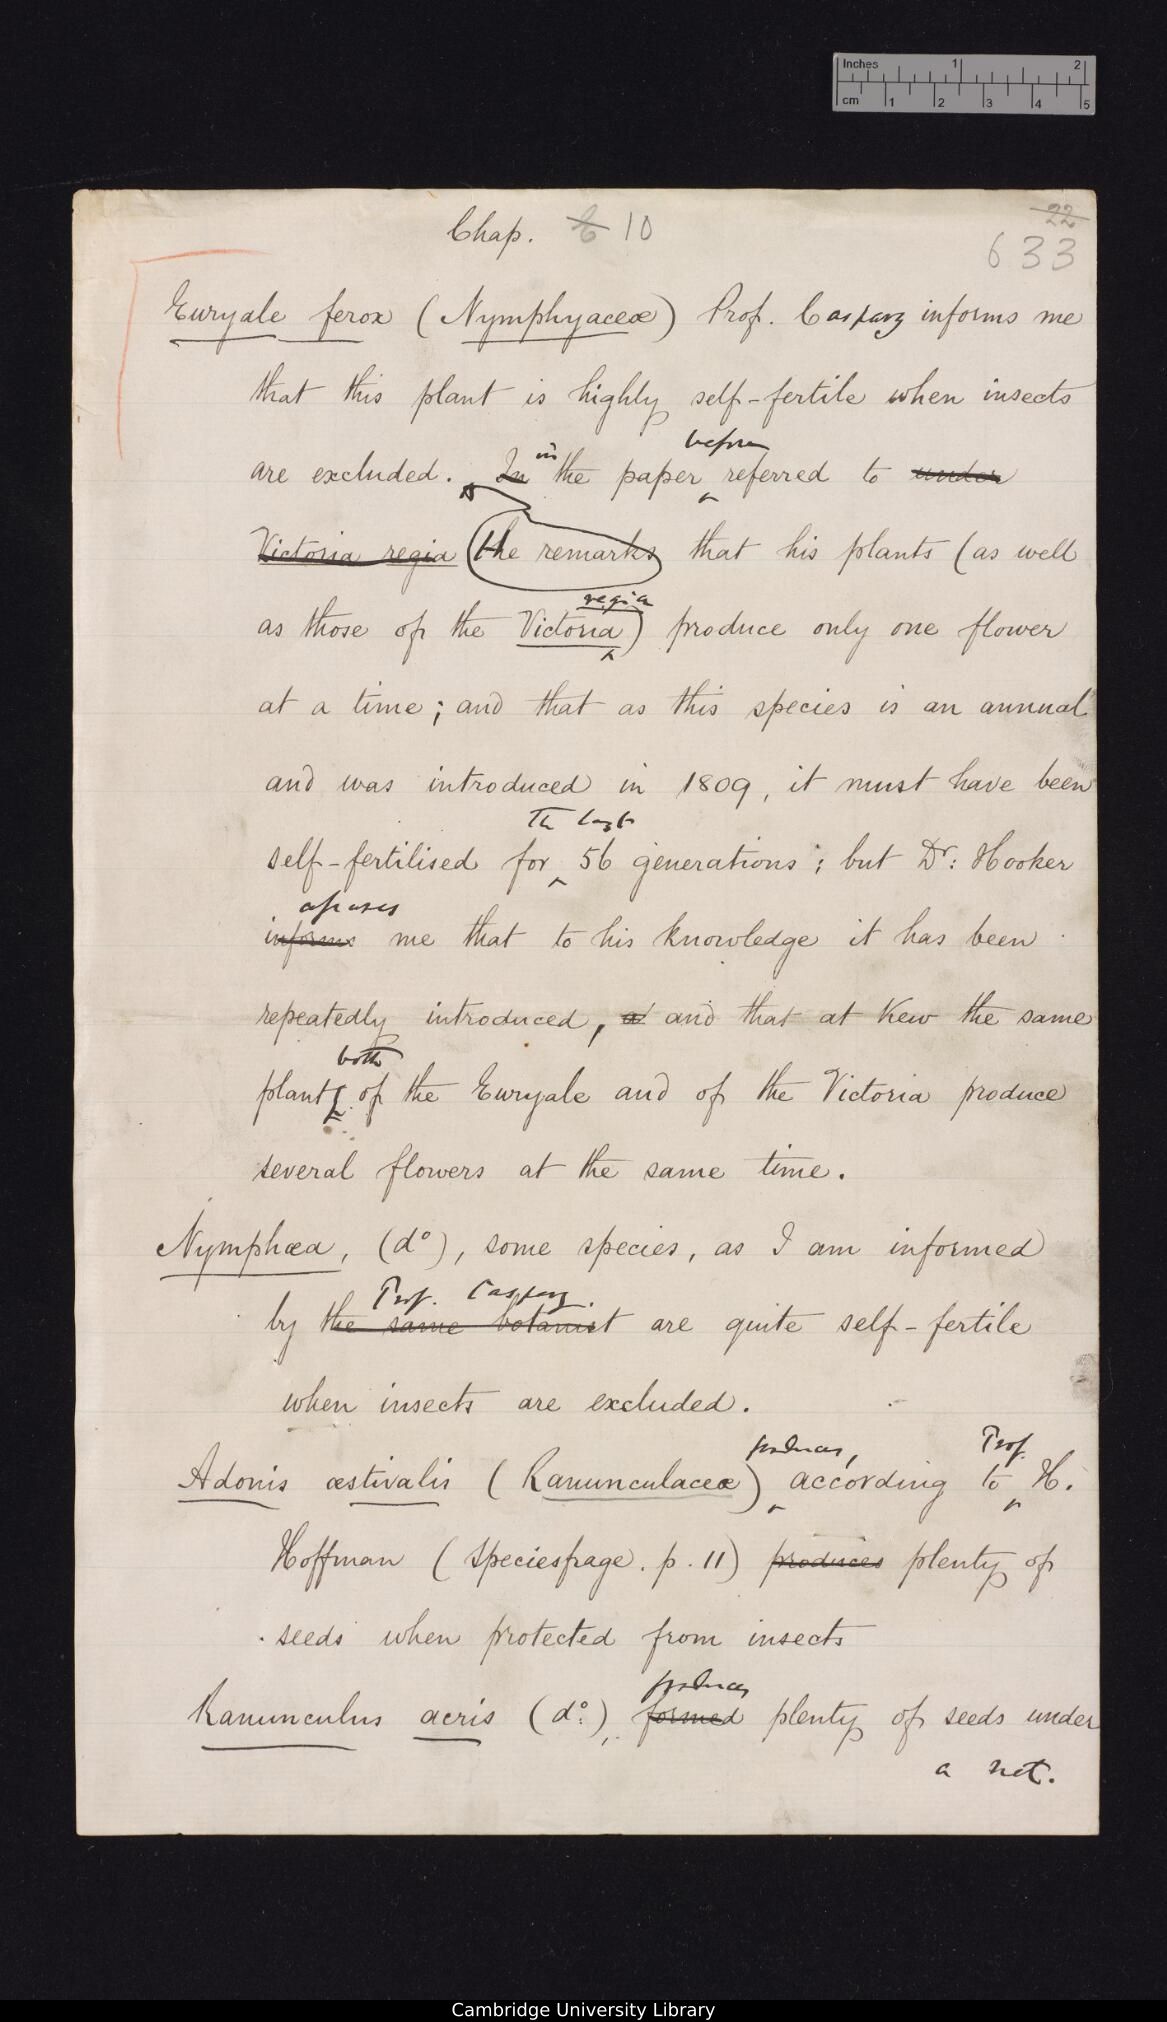 Inches 1 2
cm 1 2 3 4 5
Chap. 6 10
22
633
Euryale ferox (Nymphyaceæ) Prof. Caspary informs me
that this plant is highly self-fertile when insects
before
are excluded. In in the paper referred to under
Victoria regia (the remarks that his plants (as well
regia
as those of the Victoria) produce only one flower
at a time; and that as this species is an annual
and was introduced in 1809, it must have been
the last
self-fertilised for 56 generations; but Dr: Hooker
assures
informs me that to his knowledge it has been
repeatedly introduced, a and that at Kew the same
both
plant of the Euryale and of the Victoria produce
several flowers at the same time.
Nymphæa, (do), some species, as I am informed
Prof. Caspary.
by the same botanist are quite self-fertile
when insects are excluded.
produces, Prof.
Adonis æstivalis (Ranunculaceæ) according to H.
Hoffman (Speciesfrage. p. 11) produces plenty of
seeds when protected from insects
produces
Ranunculus acris (do:), formed plenty of seeds under
a net.
Cambridge University Library